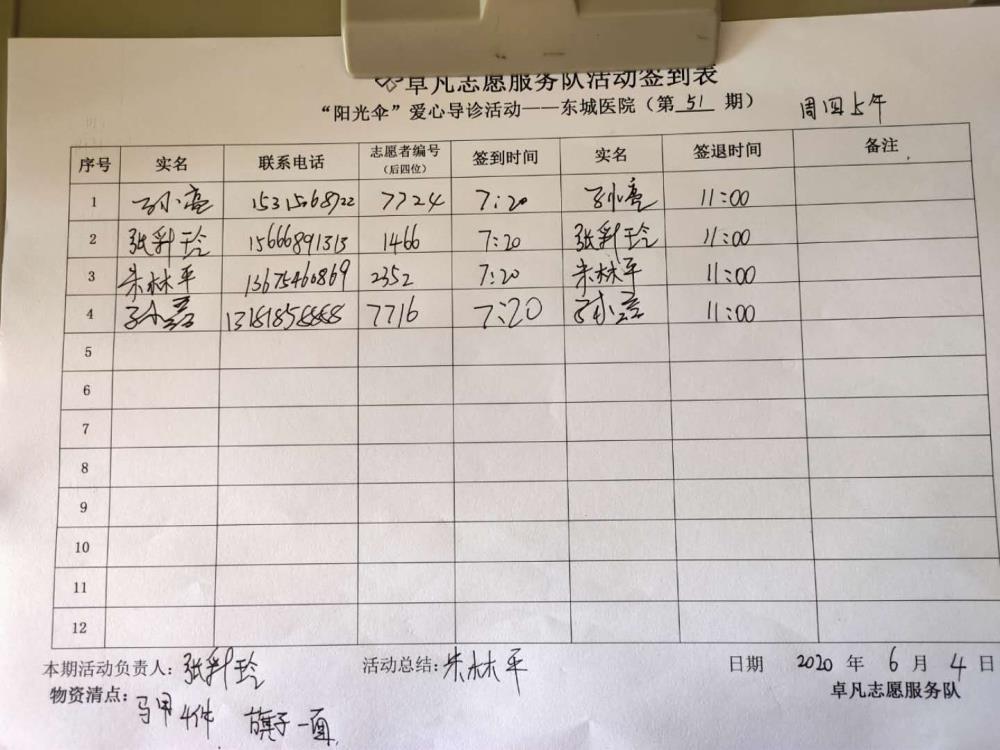 卓凡志愿服务队活动签到表
“阳光伞”爱心导诊活动——东城医院（第 51 期） 周四上午
序号 实名 联系电话 志愿者编号（后四位） 签到时间 实名 签退时间 备注
1 孙小亮 15315068922 7724 7:20 孙小亮 11:00
2 张彩玲 15666891313 1466 7:20 张彩玲 11:00
3 朱林平 13675460869 2352 7:20 朱林平 11:00
4 13181858888 7716 7:20 11:00
5
6
7
8
9
10
11
12
本期活动负责人：张彩玲 活动总结：朱林平 日期 2020 年 6 月 4 日
物资清点：马甲4件 旗子一面 卓凡志愿服务队